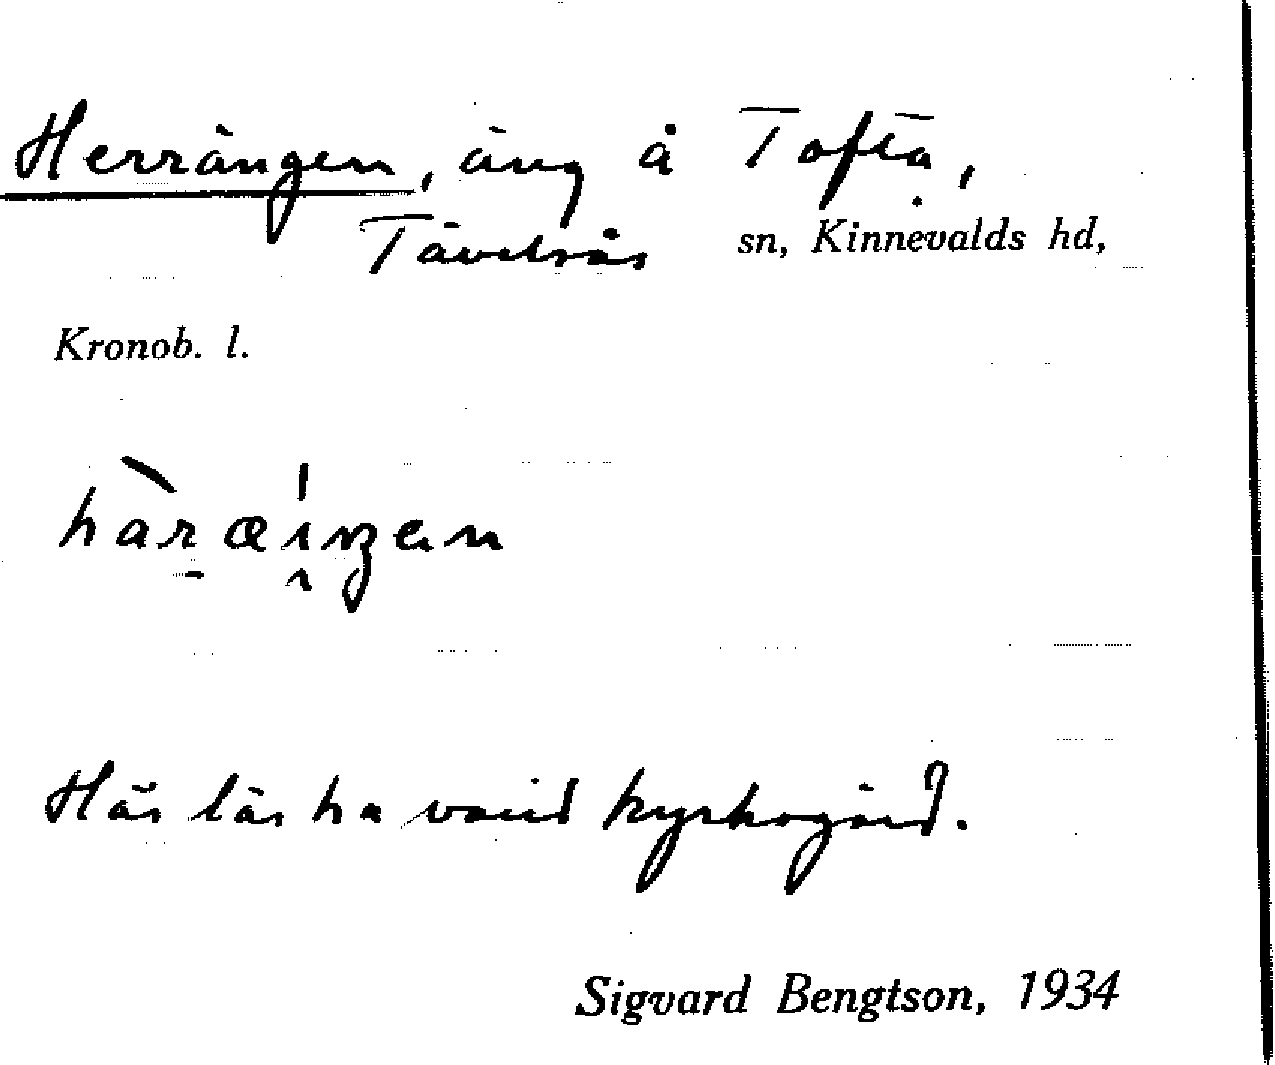 Herrängen, äng å Tofta,
Tävelsås sn, Kinnevalds hd,
Kronob. l.
Här lär ha varit kyrkogård.
Sigvard Bengtson, 1934